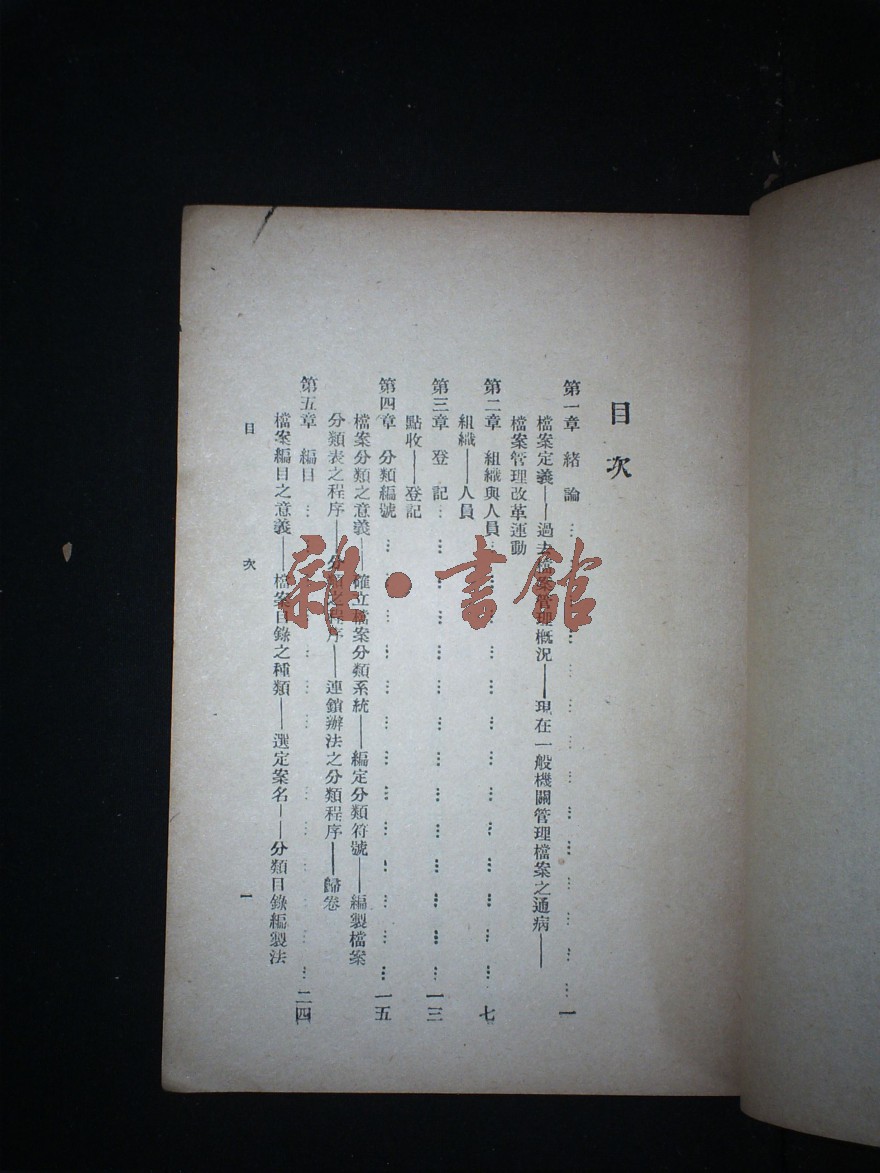 目次
第一章 緒論………………一
檔案定義——過去檔案管理概況——現在一般機關管理檔案之通病——
檔案管理改革運動
第二章 組織與人員………………七
組織——人員
第三章 登記………………一三
點收——登記
第四章 分類編號………………一五
檔案分類之意義——確立檔案分類系統——編定分類符號——編製檔案
分類表之程序——分類之程序——連鎖辦法之分類程序——歸卷
第五章 編目………………二四
檔案編目之意義——檔案目錄之種類——選定案名——分類目錄編製法
目次 一
雜·書館